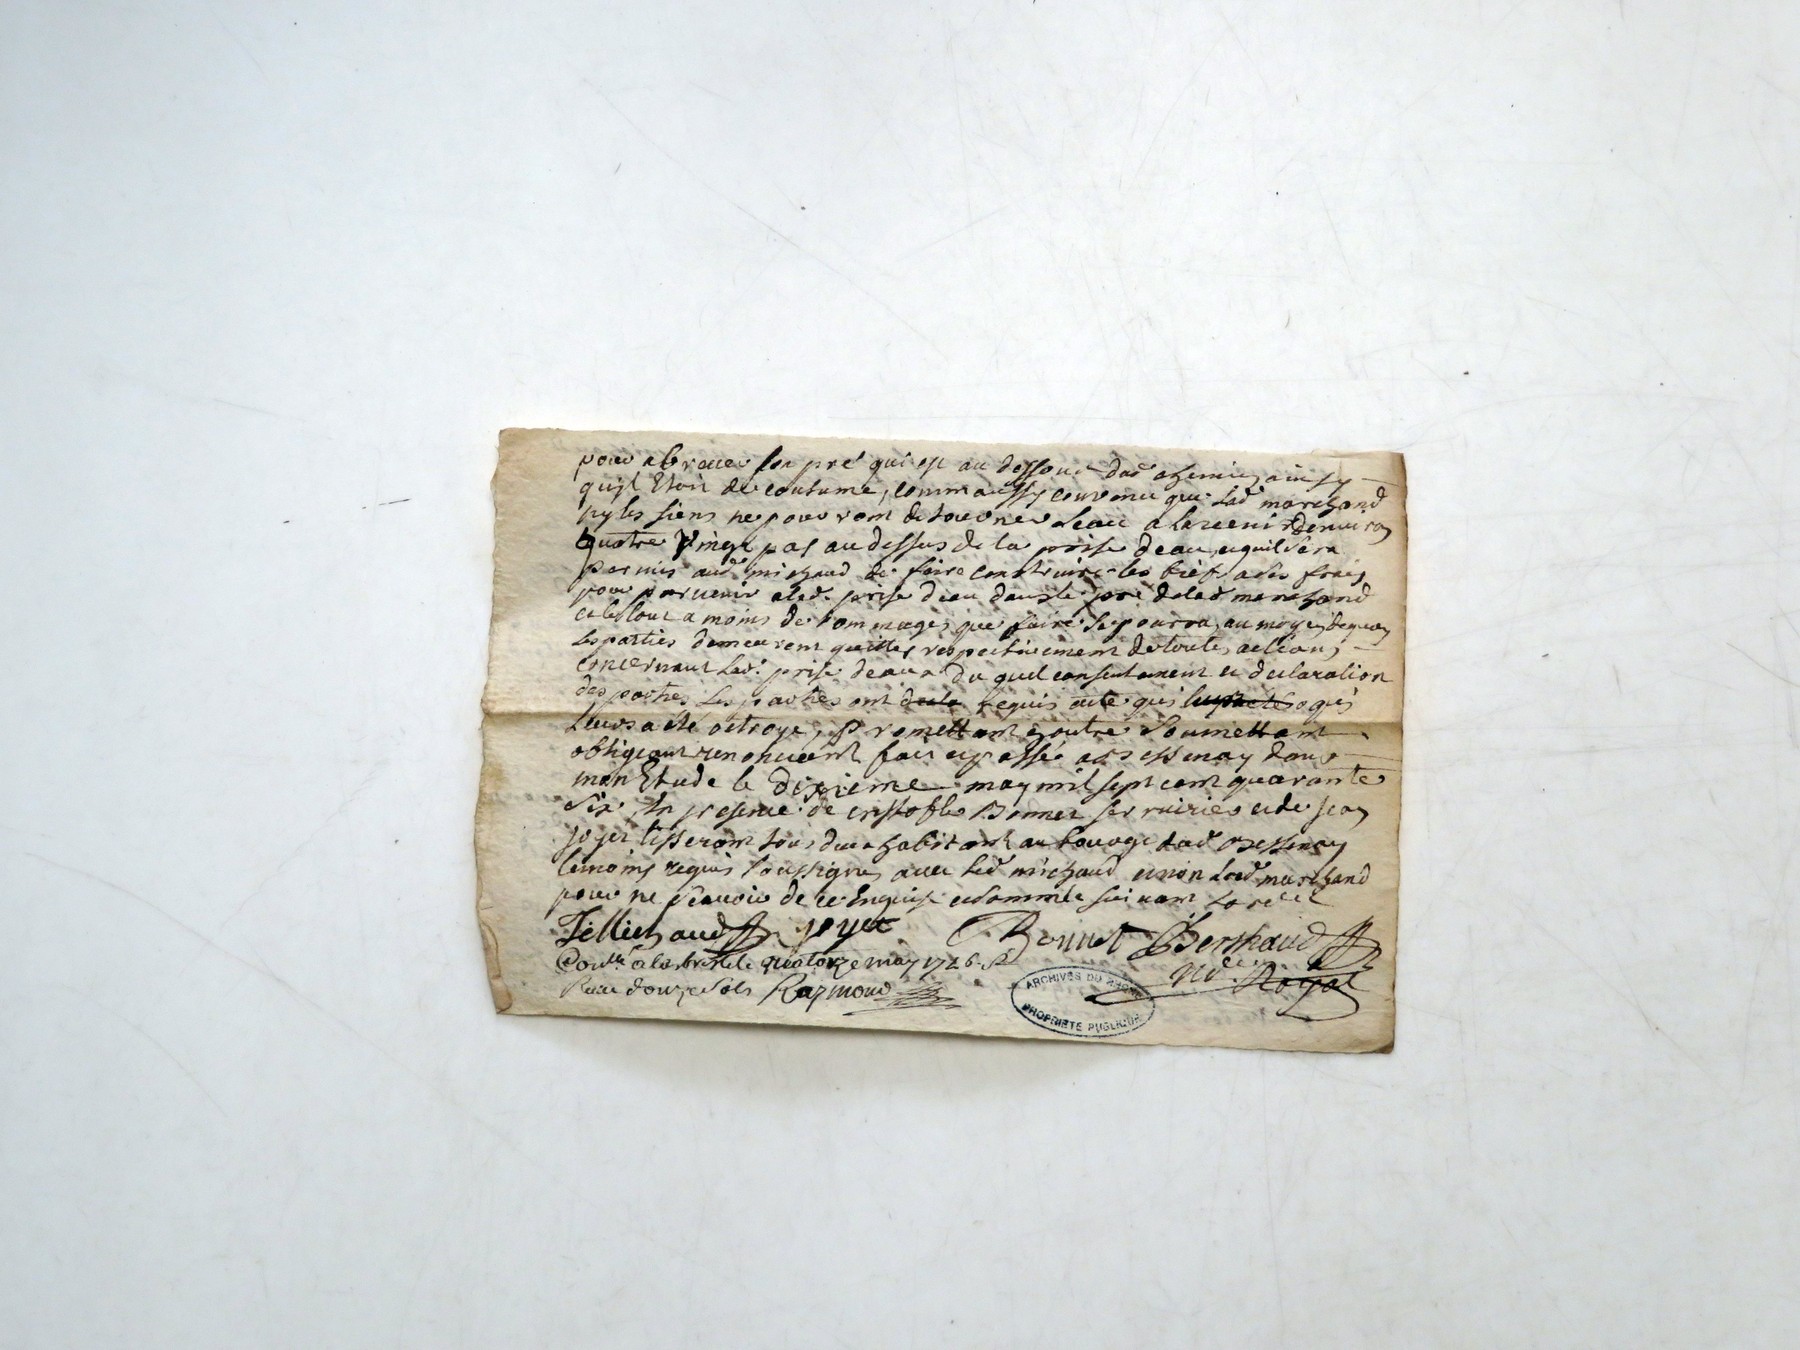 pour abreuer son pré qui est au dessous dud chemin, ainsy
quyl Etoit de coutume, comm aussy convenu que lad marchand
ny les siens ne pouvront detourner leau a lavenir denviron
quatre vingt pas au dessus de la prise deau, et quil sera
permis aud michaud de faire construire les bief a ses frais
pour parvenir a lad. prise deau dans le pré delad marchand
et le tout a moins de dommages que faire se pourra, au moyen de quoy
les parties demeurent quittes respectivement de toutes actions
concernant lad. prise deau du quel consentement et declaration
des parties les parties ont requis acte qui
leurs a été octroyé, promettant et outre soumettant
obligeant renonceant fait et passé a Bessenay dans
mon Etude le dixieme may mil sept cent quarante
six, En presence de cristofle Bonnet serrurier et de jean
joyet tisserant tous deux habitant au bourg dud Bessenay
temoins requis soussignés avec led michaud et non lad marchand
pour ne sçavoir de ce Enquise et sommée suivant
Jellichaud joyet Bonnet Berthaud
Conllé a le quatorze may 1746
Reçu douze sols Raymond nre Royal
ARCHIVES DU RHONE
PROPRIETE PUBLIQUE